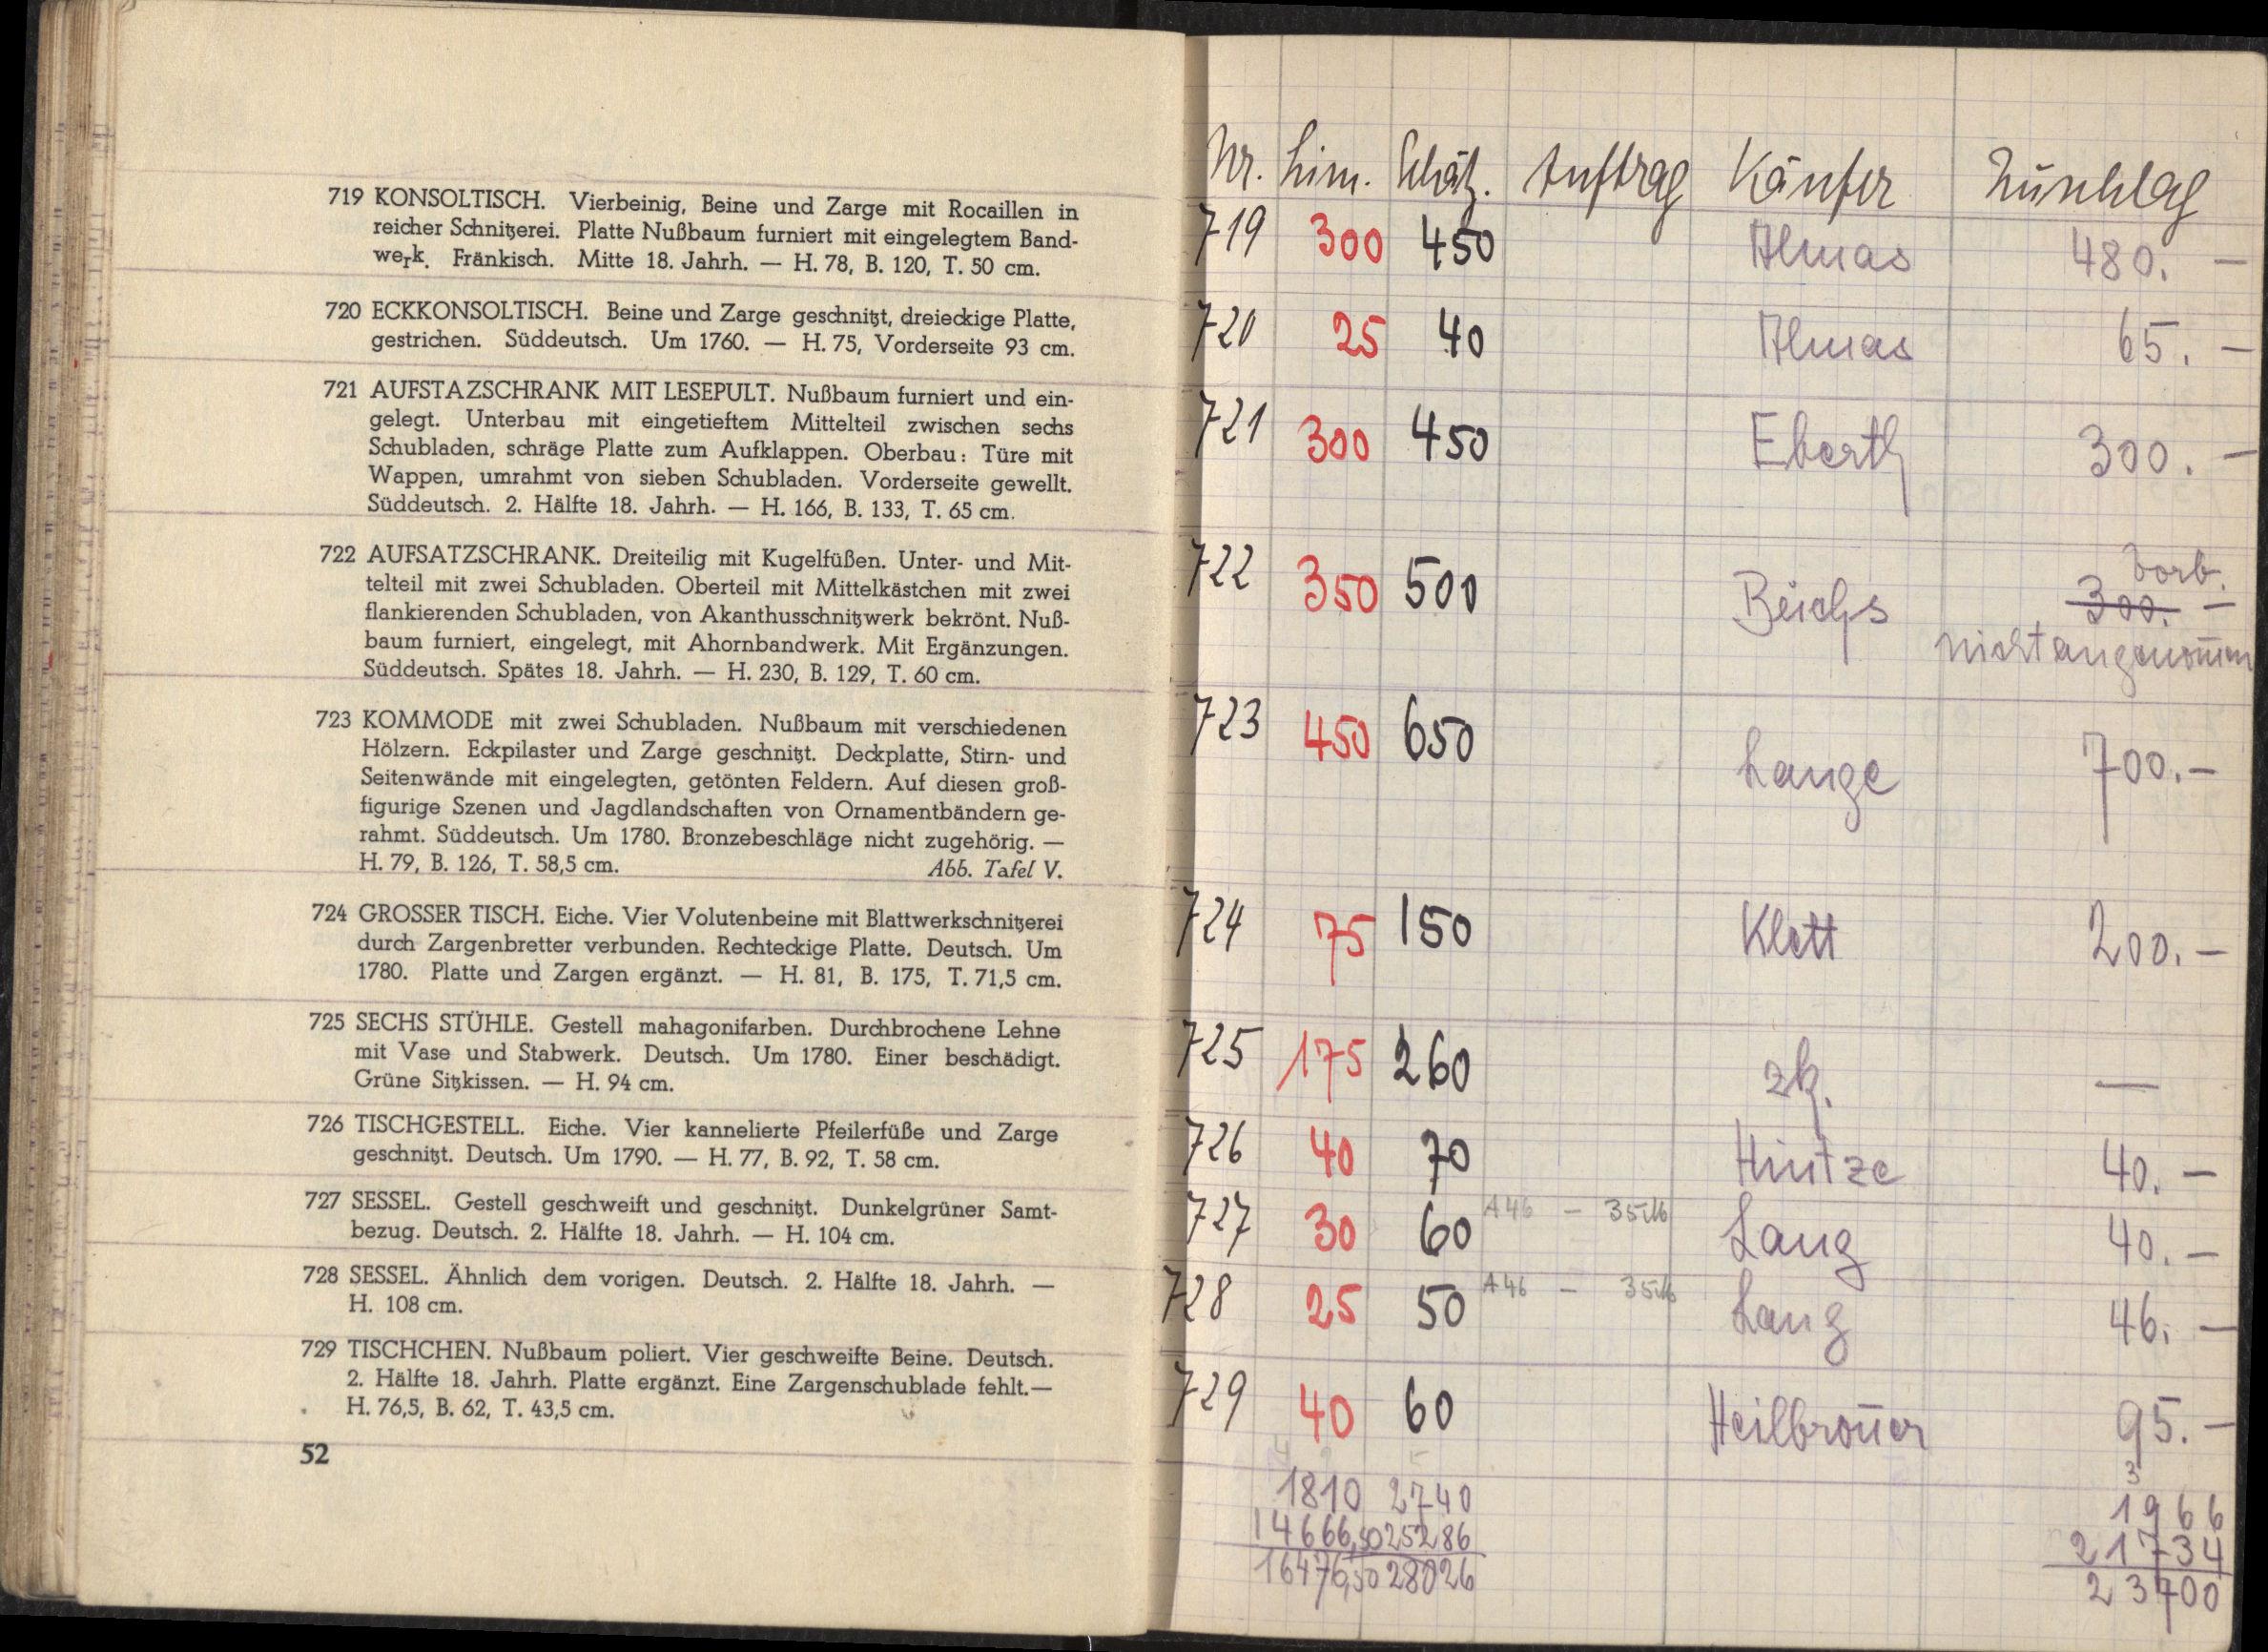 719 KONSOLTISCH. Vierbeinig, Beine und Zarge mit Rocaillen in
reicher Schnitzerei. Platte Nußbaum furniert mit eingelegtem Band-
werk. Fränkisch. Mitte 18. Jahrh. — H. 78, B. 120, T. 50 cm.
720 ECKKONSOLTISCH. Beine und Zarge geschnitzt, dreieckige Platte,
gestrichen. Süddeutsch. Um 1760. — H. 75, Vorderseite 93 cm.
721 AUFSTAZSCHRANK MIT LESEPULT. Nußbaum furniert und ein-
gelegt. Unterbau mit eingetieftem Mittelteil zwischen sechs
Schubladen, schräge Platte zum Aufklappen. Oberbau: Türe mit
Wappen, umrahmt von sieben Schubladen. Vorderseite gewellt.
Süddeutsch. 2. Hälfte 18. Jahrh. — H. 166, B. 133, T. 65 cm.
722 AUFSATZSCHRANK. Dreiteilig mit Kugelfüßen. Unter- und Mit-
telteil mit zwei Schubladen. Oberteil mit Mittelkästchen mit zwei
flankierenden Schubladen, von Akanthusschnitzwerk bekrönt. Nuß-
baum furniert, eingelegt, mit Ahornbandwerk. Mit Ergänzungen.
Süddeutsch. Spätes 18. Jahrh. — H. 230, B. 129, T. 60 cm.
723 KOMMODE mit zwei Schubladen. Nußbaum mit verschiedenen
Hölzern. Eckpilaster und Zarge geschnitzt. Deckplatte, Stirn- und
Seitenwände mit eingelegten, getönten Feldern. Auf diesen groß-
figurige Szenen und Jagdlandschaften von Ornamentbändern ge-
rahmt. Süddeutsch. Um 1780. Bronzebeschläge nicht zugehörig. —
H. 79, B. 126, T. 58,5 cm. Abb. Tafel V.
724 GROSSER TISCH. Eiche. Vier Volutenbeine mit Blattwerkschnitzerei
durch Zargenbretter verbunden. Rechteckige Platte. Deutsch. Um
1780. Platte und Zargen ergänzt. — H. 81, B. 175, T. 71,5 cm.
725 SECHS STÜHLE. Gestell mahagonifarben. Durchbrochene Lehne
mit Vase und Stabwerk. Deutsch. Um 1780. Einer beschädigt.
Grüne Sitzkissen. — H. 94 cm.
726 TISCHGESTELL. Eiche. Vier kannelierte Pfeilerfüße und Zarge
geschnitzt. Deutsch. Um 1790. — H. 77, B. 92, T. 58 cm.
727 SESSEL. Gestell geschweift und geschnitzt. Dunkelgrüner Samt-
bezug. Deutsch. 2. Hälfte 18. Jahrh. — H. 104 cm.
728 SESSEL. Ähnlich dem vorigen. Deutsch. 2. Hälfte 18. Jahrh. —
H. 108 cm.
729 TISCHCHEN. Nußbaum poliert. Vier geschweifte Beine. Deutsch.
2. Hälfte 18. Jahrh. Platte ergänzt. Eine Zargenschublade fehlt.—
H. 76,5, B. 62, T. 43,5 cm.
52
Nr. Lim. Schätz. Auftrag Käufer Zuschlag
719 300 450 Almas 480. —
720 25 40 Almas 65. —
721 300 450 Eberth 300. —
722 350 500 Vorb.
300. —
nicht angenom̄en
723 450 650 Lange 700. —
724 75 150 Klett 200. —
725 175 260 zk. —
726 40 70 Hintze 40. —
727 30 60 A46 – 35 M Lang 40. —
728 25 50 A46 – 35 M Lang 46. —
729 40 60 Heilbron̄er 95. —
1810 2740 1966
14666,50 25286 21734
16476,50 28026 23700